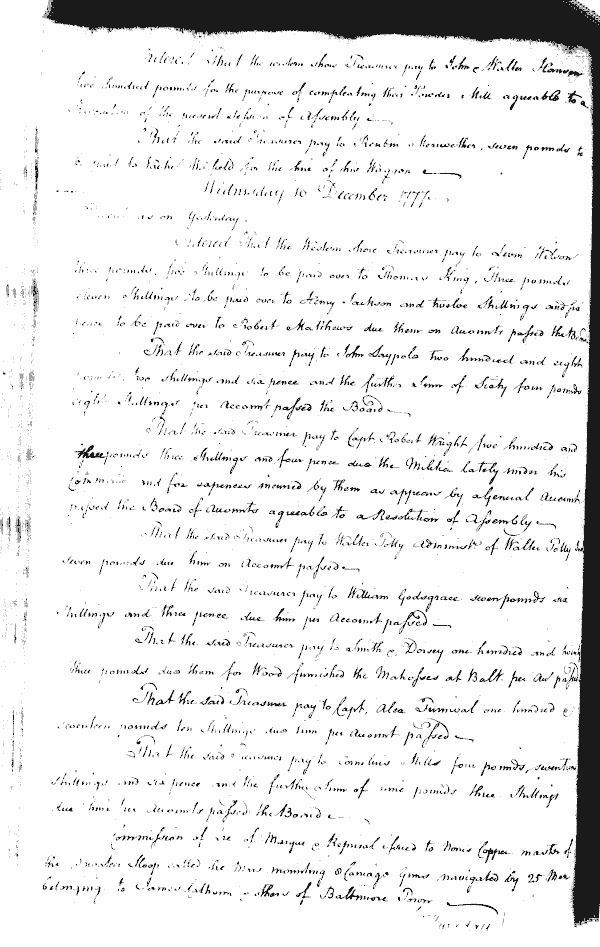 Ordered That the western shore Treasurer pay to John & Walter Hanson
five hundred pounds for the purpose of compleating their Powder Mill agreeable to a
Resolution of the present Session of Assembly
That the said Treasurer pay to Reubin Meriwether, seven pounds to
be paid to for the hire of his Waggon
Wednesday 10 December 1777
Present as on Yesterday.
Ordered That the Western shore Treasurer pay to Levin Wilson
three pounds, five Shillings to be paid over to Thomas King, Three pounds
eleven Shillings to be paid over to Henry Jackson and twelve Shillings and six
pence to be paid over to Robert Matthews due them on Accounts passed the Board
That the said Treasurer pay to John Sheppard two hundred and eighty
five shillings and six pence and the further Sum of Sixty four pounds
eight Shillings per Account passed the Board
That the said Treasurer pay to Capt. Robert Wright five hundred and
three pounds three Shillings and four pence due the Militia lately under his
Command and for expences incured by them as appears by a General Account
passed the Board of Accounts agreeable to a Resolution of Assembly
That the said Treasurer pay to Walter Tolly Administr. of Walter Tolly
seven pounds due him on Account passed
That the said Treasurer pay to William Godsgrace seven pounds six
shillings and three pence due him per Account passed
That the said Treasurer pay to Smith & Dorsey one hundred and
three pounds due them for Wood furnished the Matrosses at Balt. per Acct. passed
That the said Treasurer pay to Capt. Alex Furnival one hundred &
seventeen pounds ten Shillings due him per Account passed
That the said Treasurer pay to Cornelius Mills four pounds, seventeen
shillings and six pence and the further Sum of nine pounds three Shillings
due him per Accounts passed the Board
Commission of Lre of Marque & Reprisal issued to Copper master of
the Privateer Sloop called the mounting 8 Carriage Guns navigated by 25 Men
belonging to James Calhoun & others of Baltimore Town